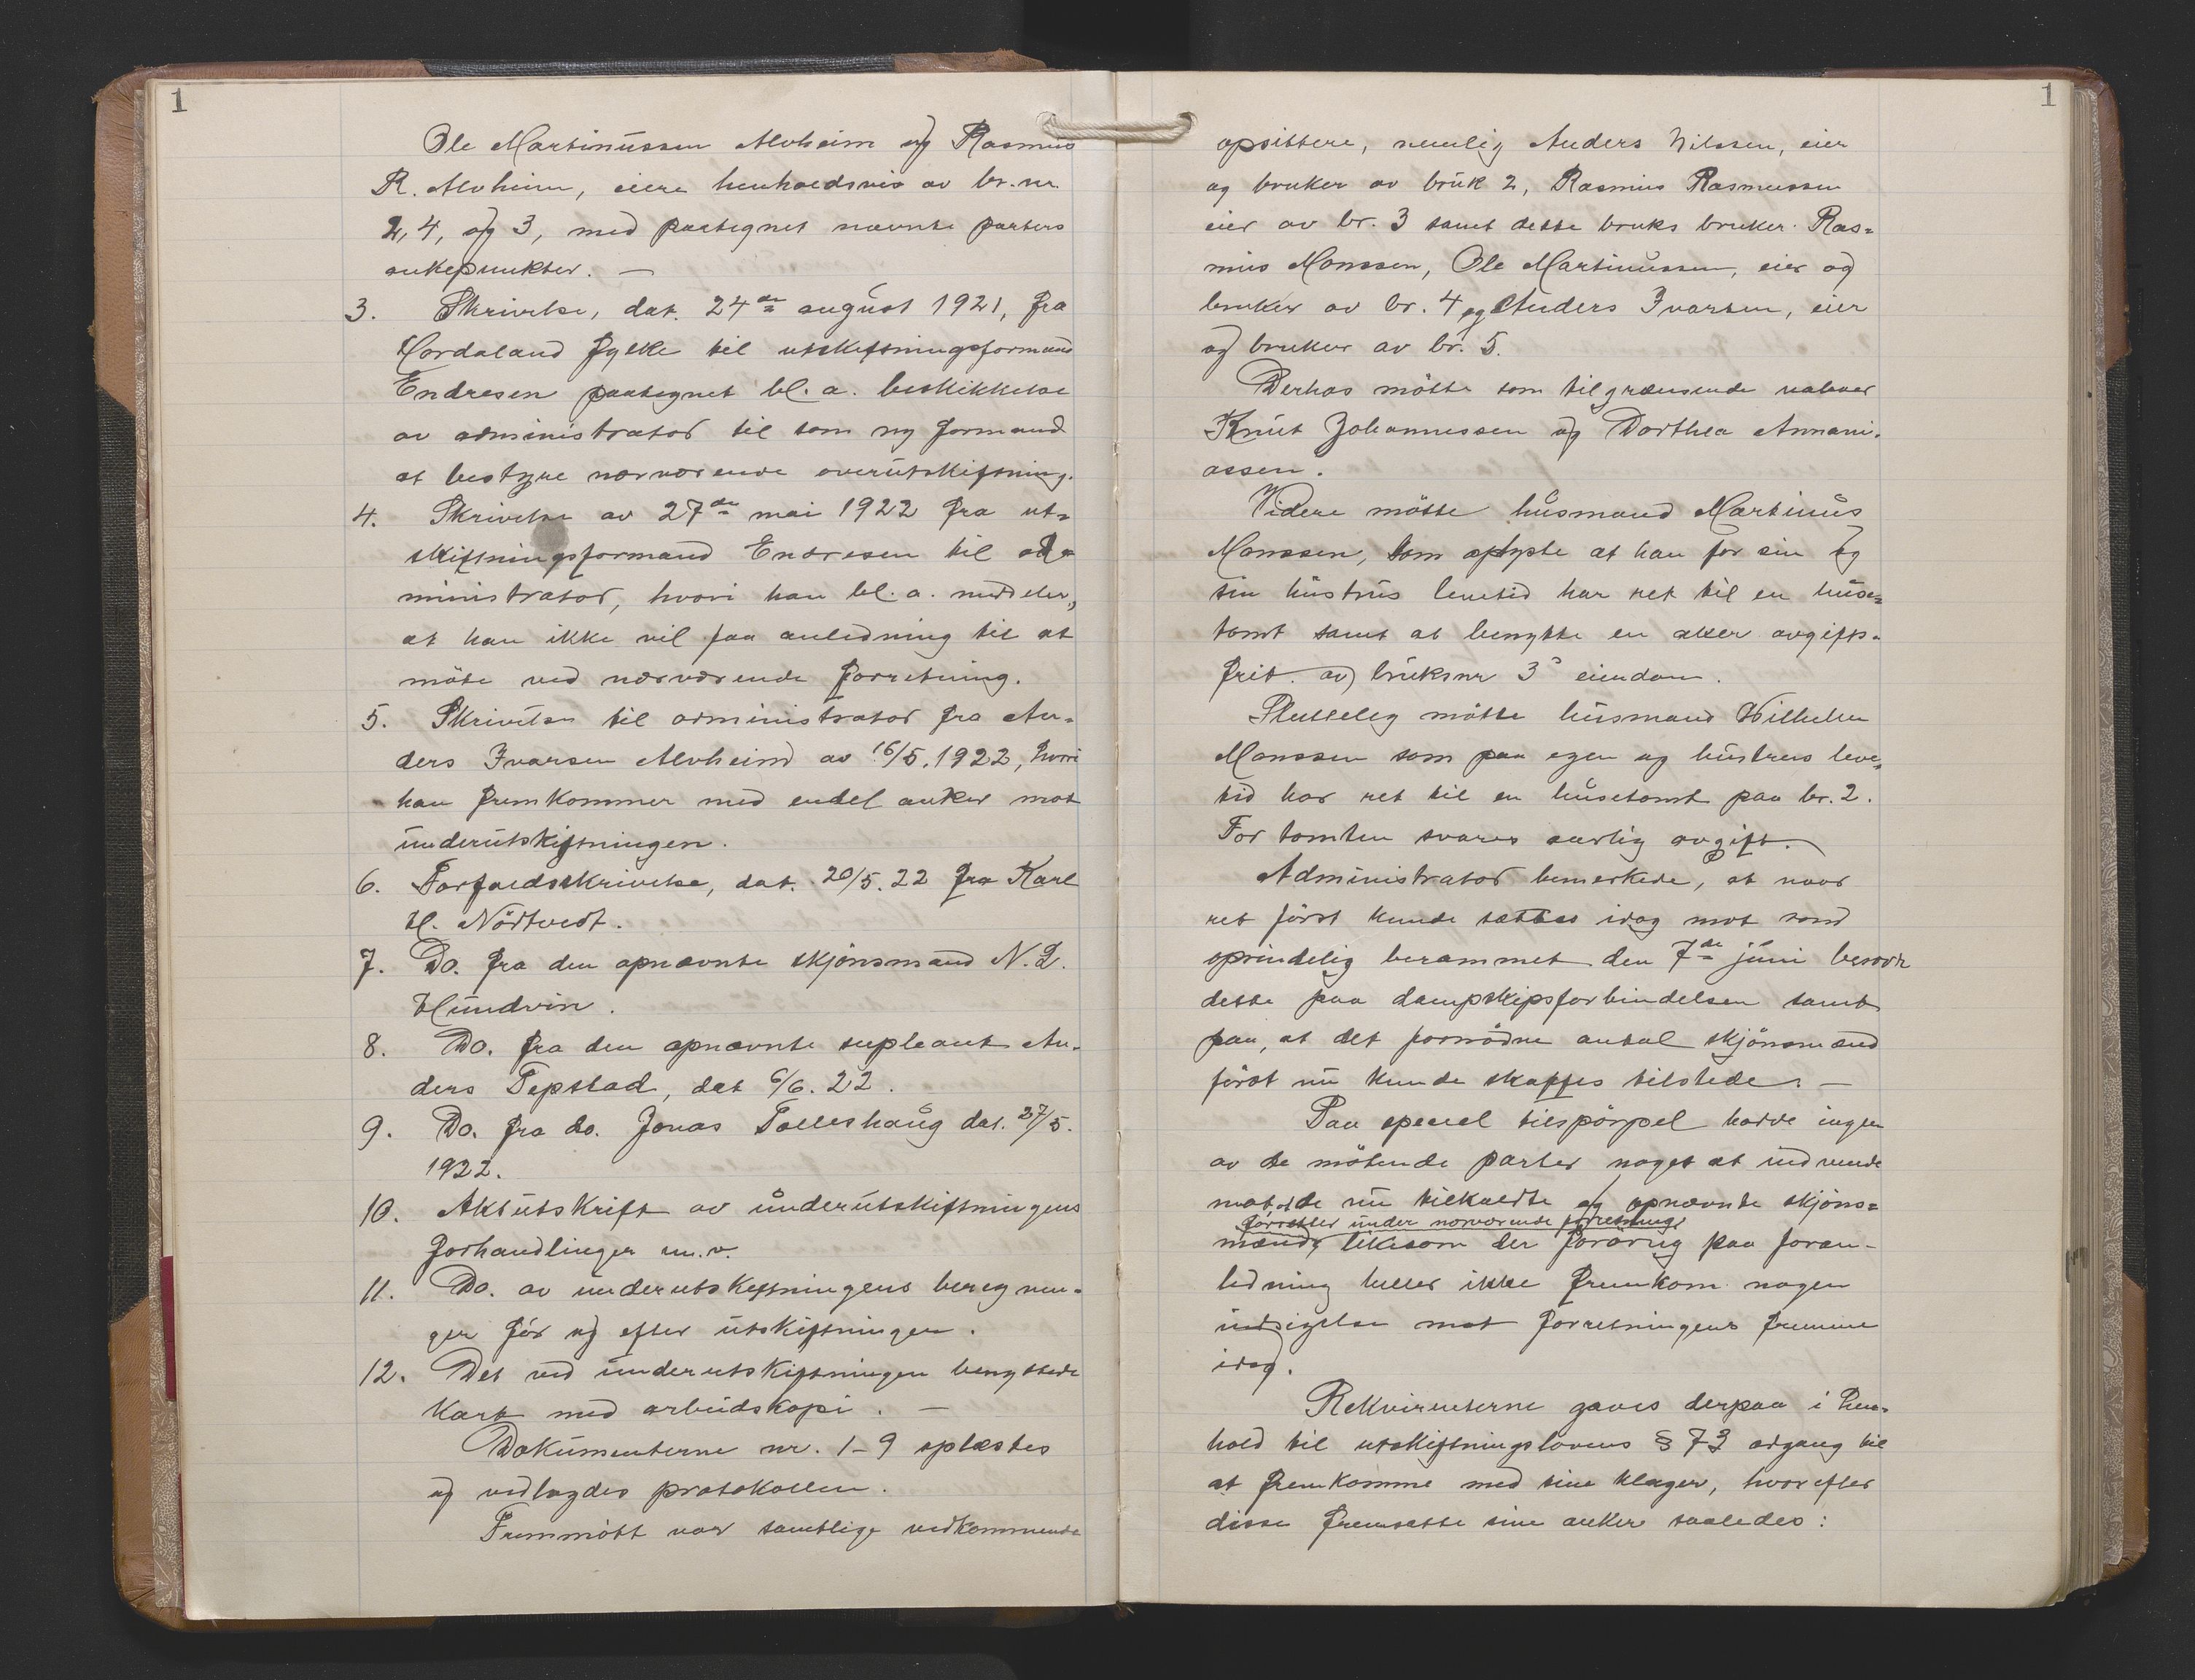 1
Ole Martinussen Alvheim og Rasmus
R. Alvheim, eiere henholdsvis av br.nr.
2, 4, og 3, med paategnet nævnte parters
ankepunkter. —
3. Skrivelse, dat. 24de august 1921, fra
Hordaland fylke til utskiftningsformand
Endresen paategnet bl. a. beskikkelse
av administrator til som ny formand
at bestyre nærværende overutskiftning.
4. Skrivelse av 27de mai 1922 fra ut=
skiftningsformand Endresen til ad=
ministrator, hvori han bl. a. meddeler,
at han ikke vil faa anledning til at
möte ved nærværende forretning.
5. Skrivelse til administrator fra An-
ders Ivarsen Alvheim av 16/5. 1922, hvori
han fremkommer med endel anker mot
underutskiftningen.
6. Forfaldsskrivelse, dat. 20/5. 22 fra Karl
H. Nödtvedt.
7. Do. fra den opnævnte skjönsmand N. L.
Hundvin.
8. Do. fra den opnævnte supleant An-
ders Tepstad, dat 6/6. 22.
9. Do. fra do. Jonas Tolleshaug dat. 27/5.
1922.
10. Aktutskrift av underutskiftningens
forhandlinger m.v.
11. Do. av underutskiftningens beregnin-
ger för og efter utskiftningen.
12. Det ved underutskiftningen benyttede
kart med arbeidskopi. —
Dokumenterne nr. 1-9 oplæstes
og vedlagdes protokollen.
Fremmött var samtlige vedkommende
1
opsittere, nemlig Anders Nilssen, eier
og bruker av bruk 2, Rasmus Rasmussen
eier av br. 3 samt dette bruks bruker Ras=
mus Monssen, Ole Martinussen, eier og
bruker av br. 4 og Anders Ivarsen, eier
og bruker av br. 5.
Derhos mötte som tilgrænsende naboer
Knut Johannessen og Dorthea Annani-
assen.
Videre mötte husmand Martinus
Monssen, som oplyste at han for sin og
sin hustrus levetid har ret til en huse=
tomt samt at benytte en aker avgifts-
frit av bruksnr 3s eiendom.
Slutteleg mötte husmand Wilhelm
Monssen som paa egen og hustrus leve=
tid har ret til en husetomt paa br. 2.
For tomten svares aarlig avgift.
Administrator bemerkede, at naar
ret först kunde sættes idag mot som
oprindelig berammet den 7de juni beror
dette paa dampskipsforbindelsen samt
paa, at det fornödne antal skjönsmænd
först nu kunde skaffes tilstede. —
Paa speciel tilspörgsel hadde ingen
av de mötende parter noget at indvende
mot de nu tilkaldte og opnævnte skjöns=
forretter under nærværende forretning,
mænd likesom der forövrig paa foran-
ledning heller ikke fremkom nogen
indsigelse mot forretningens fremme
idag.
Rekvirenterne gaves derpaa i hen-
hold til utskiftningslovens § 73 adgang til
at fremkomme med sine klager, hvorefter
disse fremsatte sine anker saaledes: